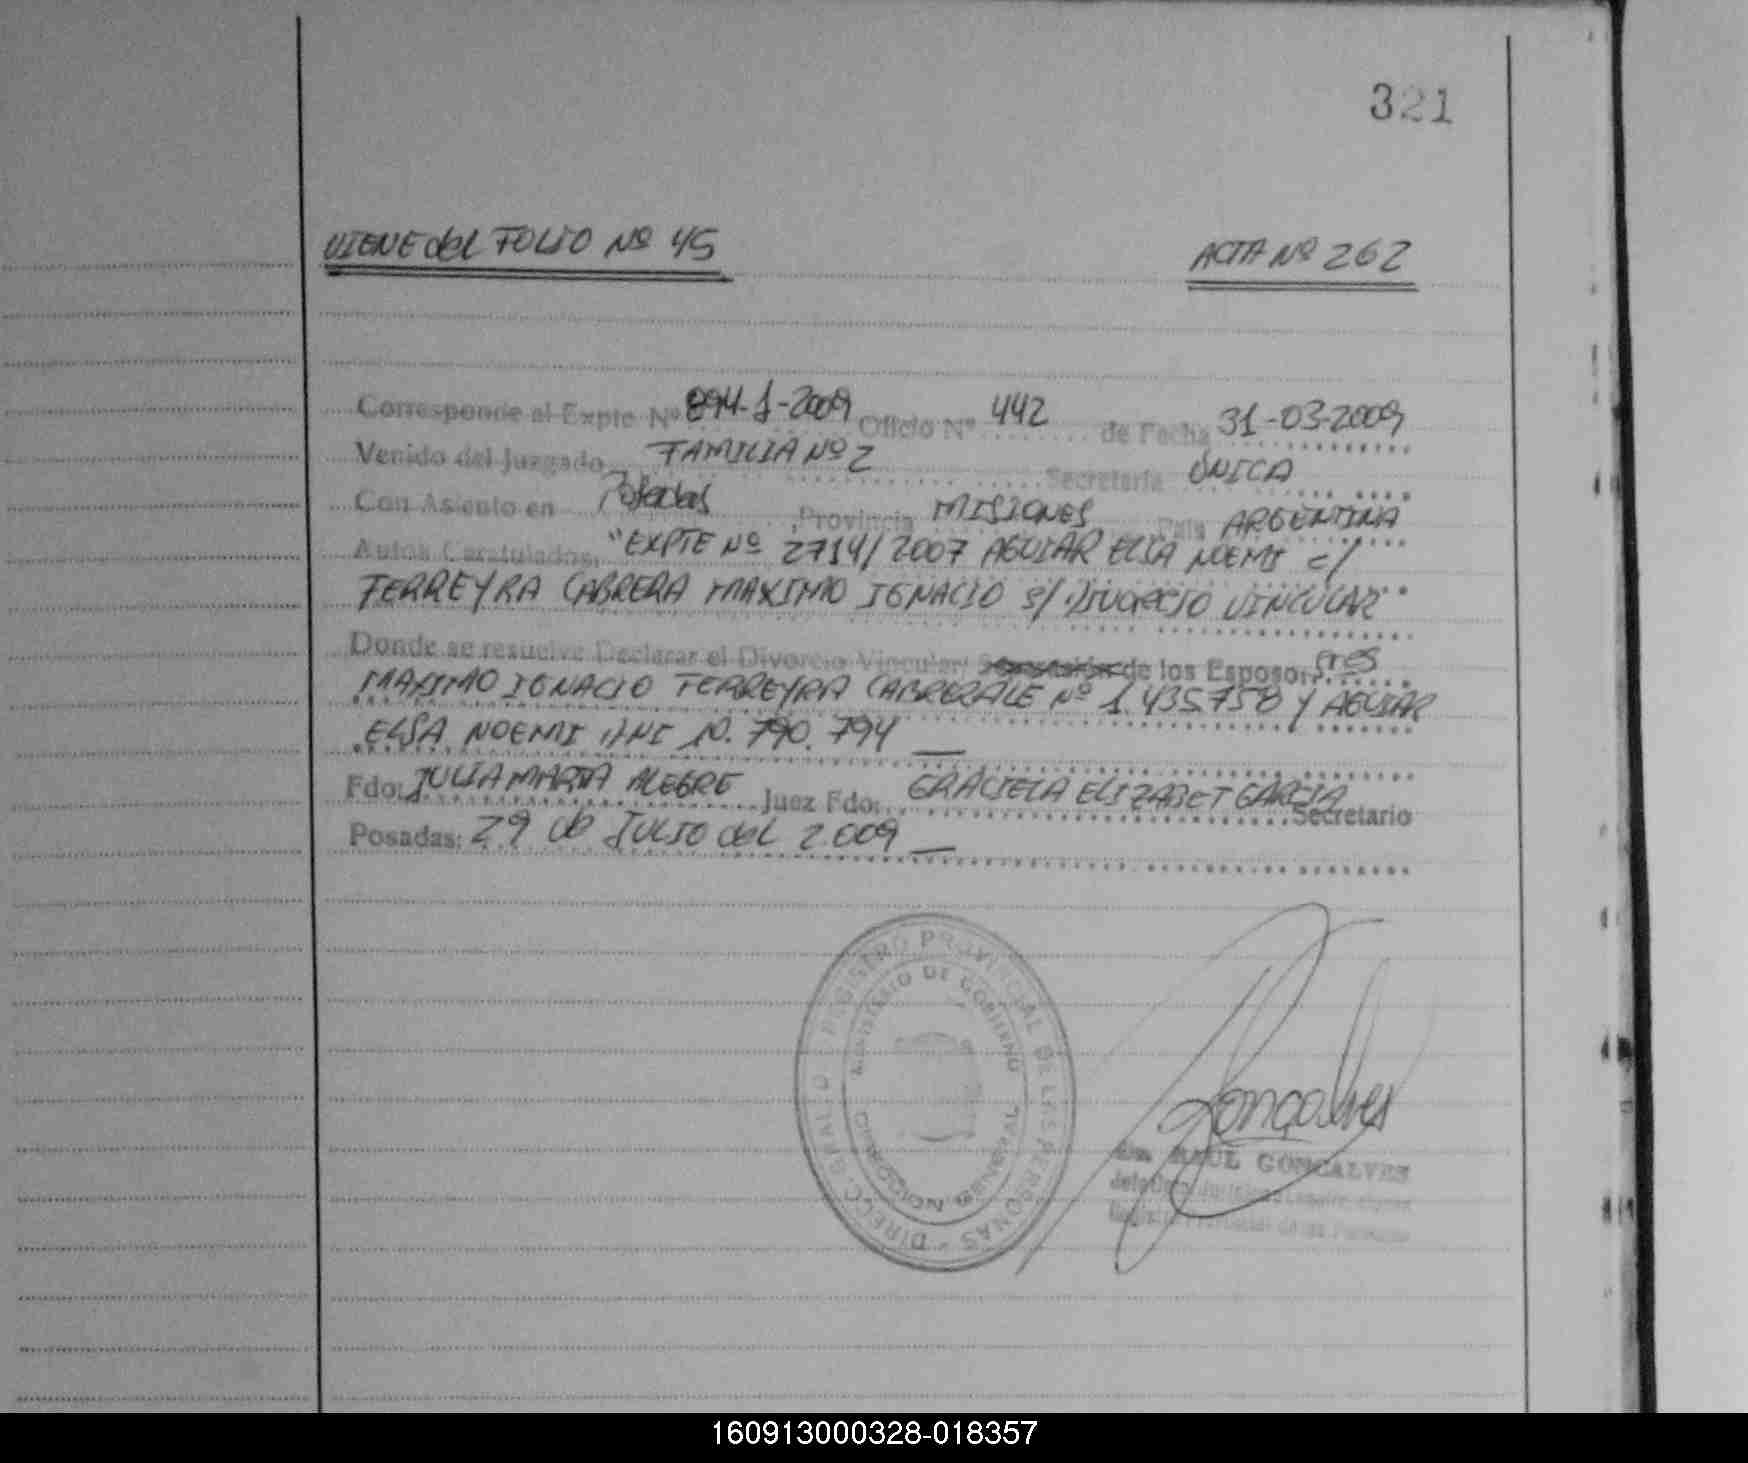 321
VIENE del FOLIO Nº 45
ACTA Nº 262
Corresponde al Expte Nº 894-J-2009 Oficio Nº 442 de Fecha 31-03-2009
Venido del Juzgado FAMILIA Nº 2 Secretaría ÚNICA
Con Asiento en Posadas, Provincia MISIONES País ARGENTINA
Autos Caratulados, "EXPTE Nº 2714/2007 AGUIAR ELSA NOEMI c/
FERREYRA CABRERA MAXIMO IGNACIO s/ DIVORCIO VINCULAR
Donde se resuelve Declarar el Divorcio Vincular de los Esposos, Sres
MAXIMO IGNACIO FERREYRA CABRERA LE Nº 1.435.758 Y AGUIAR
ELSA NOEMI DNI 10.790.794
Fdo: JULIA MARTA ALEGRE Juez Fdo: GRACIELA ELIZABET GARCIA Secretario
Posadas: 29 de JULIO del 2.009
DIRECC. GRAL. D REGISTRO PROVINCIAL DE LAS PERSONAS
MINISTERIO DE GOBIERNO
DIRECCION GENERAL
Gonçalves
RAUL GONCALVES
Registro Provincial de las Personas
160913000328-018357